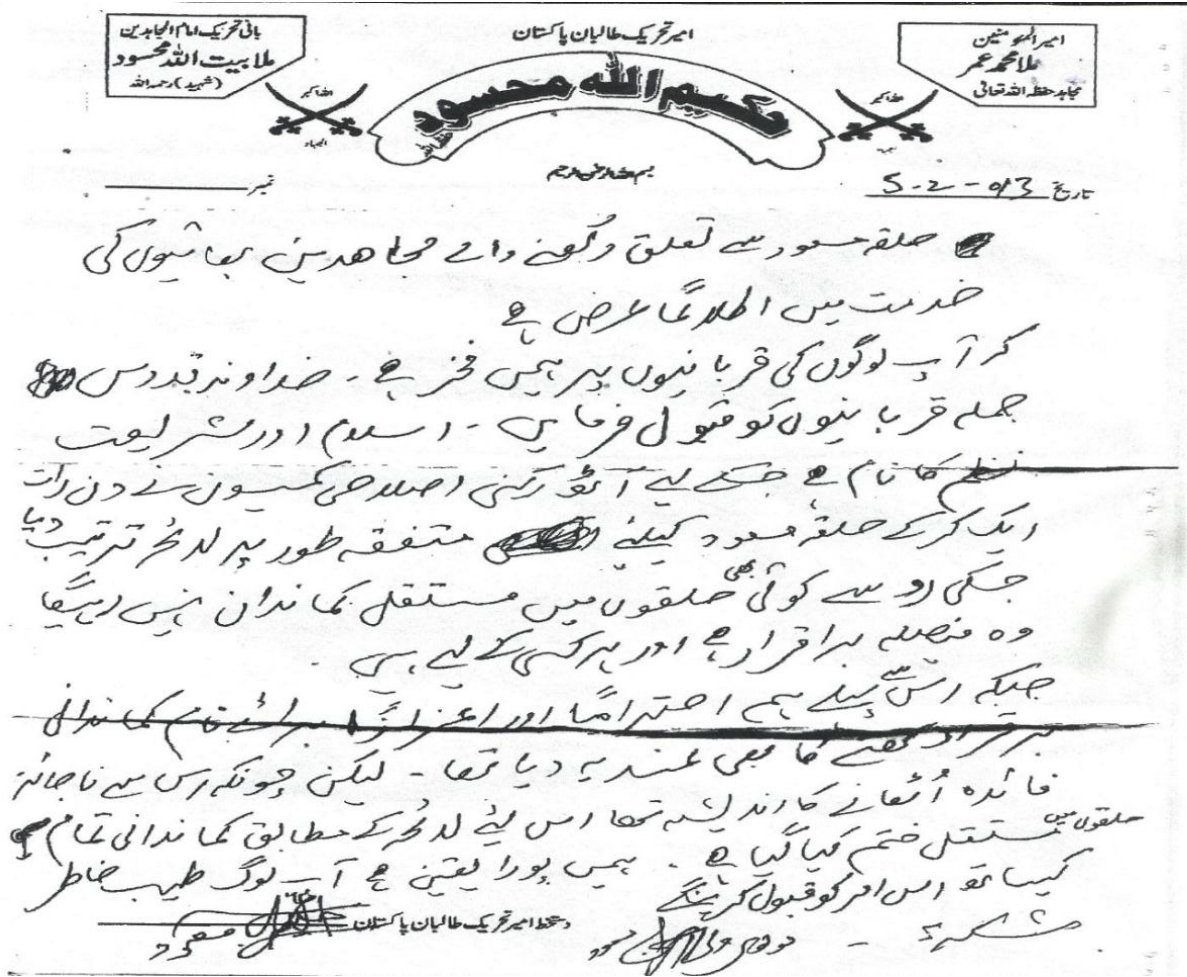 امیر المومنین
ملا محمد عمر
مجاہد حفظہ اللہ تعالیٰ
امیر تحریک طالبان پاکستان
حکیم اللہ محسود
حفظہ اللہ
بانی تحریک امام المجاہدین
ملا بیت اللہ محسود
(شہید) رحمہ اللہ
اللہ اکبر
اللہ اکبر
الجہاد
بسم اللہ الرحمن الرحیم
تاریخ 5-2-013
نمبر
حلقہ مسعود سے تعلق رکھنے والے مجاھدین بھائیوں کی
خدمت میں اطلاعًا عرض ہے
کہ آپ لوگوں کی قربانیوں پر ہمیں فخر ہے۔ خداوند قدوس
جملہ قربانیوں کو قبول فرمایں - اسلام اور شریعت
نظم کا نام ہے جسکے لیے آٹھ رکنی اصلاحی کمیسون نے دن رات
ایک کرکے حلقہ مسعود کیلئے متفقہ طور پر لائحہ ترتیب دیا
جسکی رو سے کوئی بھی حلقوں میں مستقل کماندان نہیں رہیگا
وہ فیصلہ برقرار ہے اور ہر کسی کے لیے ہیں
جبکہ اس سے پہلے ہم احترامًا اور اعزازًا برائے نام کماندانی
برقرار رکھنے کا بھی عندیہ دیا تھا - لیکن چونکہ اس سے ناجائز
فائدہ اُٹھانے کا اندیشہ تھا اس لیئے لائحہ کے مطابق کماندانی تمام
حلقوں میں مستقل ختم کیا گیا ہے . ہمیں پورا یقین ہے آپ لوگ طیب خاطر
کیساتھ اس امر کو قبول کرینگے
شکریہ
دستخط امیر تحریک طالبان پاکستان
مسعود